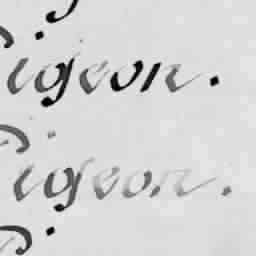 igeon.
igeon.